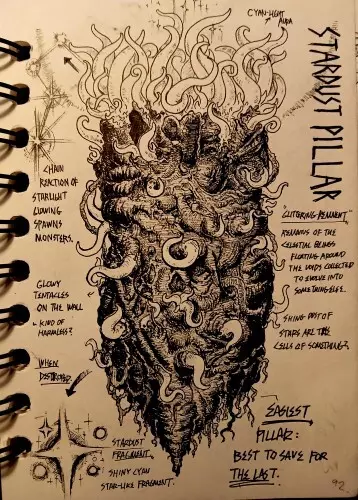 CYAN-LIGHT
AURA
STARDUST PILLAR
CHAIN
REACTION OF
STARLIGHT
LUVING
SPAWNS
MONSTERS.
"GLITTERING REMNANT"
REMAINS OF THE
CELESTIAL BEINGS
FLOATING AROUND
THE VOIDS COLLECTED
TO EVOLVE INTO
SOMETHING ELSE.
GLOWY
TENTACLES
ON THE WALL
KIND OF
HARMLESS?
SHINY DUST OF
STARS ARE THE
CELLS OF SOMETHING?
WHEN
DESTROYED
STARDUST
FRAGMENT
SHINY CYAN
STAR-LIKE FRAGMENT.
EASIEST
PILLAR:
BEST TO SAVE FOR
THE LAST.